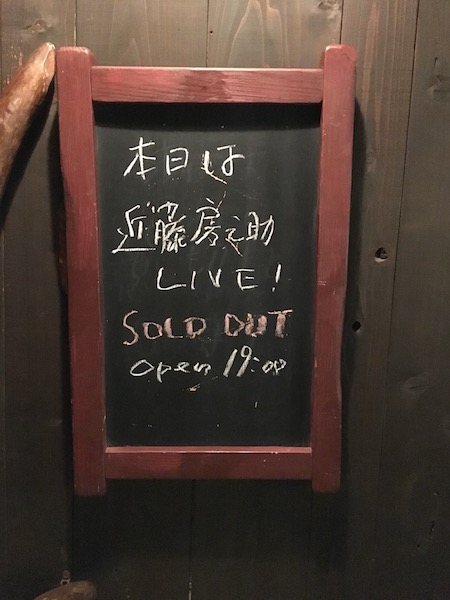 本日は
近藤房之助
LIVE!
SOLD OUT
open 19:00